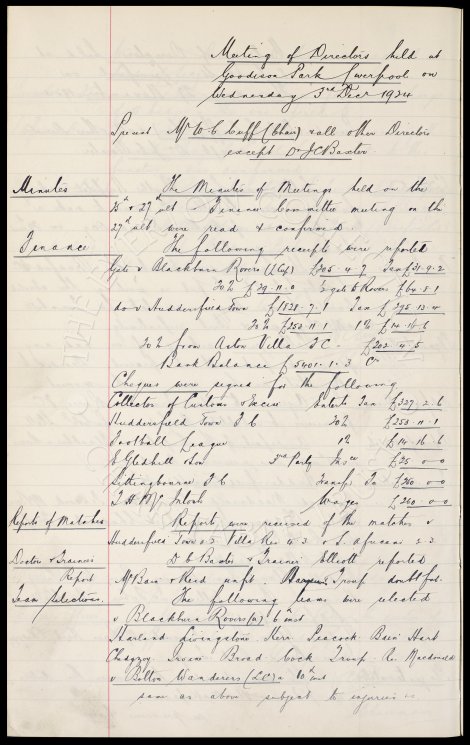 Meeting of Directors held at
Goodison Park Liverpool on
Wednesday 3rd Decr 1924
Present Mr W C Cuff (Chair) & all other Directors
except Dr J C Baxter
Minutes
The Minutes of Meetings held on the
& 27th ult Finance Committee meeting on the
27th ult were read & confirmed.
Finance
The following receipts were reported
Gate v Blackburn Rovers (L Cup) £205-4-7 Tax £31-9-2
20% £29-11-0 £64-8-1
do v Huddersfield Town £1528-7-1 Tax £295-13-4
20% £253-11-1 1% £14-16-6
20% from Aston Villa F C - £202-4-5
Bank Balance £5401-1-3 Cr
Cheques were signed for the following
Collector of Customs & Excise Enterts Tax £327-2-6
Huddersfield Town F C 20% £253-11-1
Football League 1% £14-16-6
E Gledhill & Son 3rd Party Insce £25-0-0
Sittingbourne F C Transfer £250-0-0
T H McIntosh Wages £260-0-0
Reports of Matches
Reports were received of the matches v
Huddersfield Town Villa Res 4.3 & S. Africans 2.3
Doctor & Trainers
Report
Dr Baxter & Trainer Elliott reported
McBain & Reid unfit. Troup doubtful.
Team Selections.
The following teams were selected
v Blackburn Rovers (a) 6th inst
Harland Livingstone Kerr Peacock Bain Hart
Chedgzoy Irvine Broad Cock Troup Re. Macdonald
v Bolton Wanderers (LC) a 10th inst
same as above subject to injuries